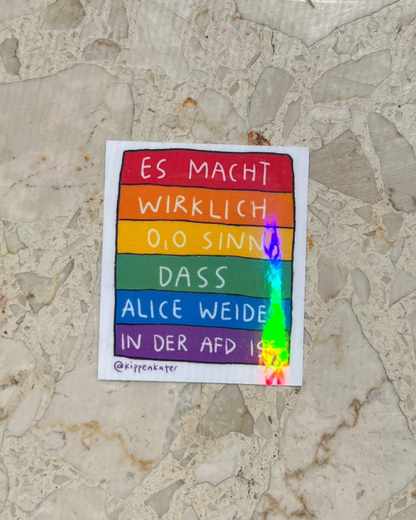 ES MACHT
WIRKLICH
0,0 SINN
DASS
ALICE WEIDEL
IN DER AFD IST
@kippenkater